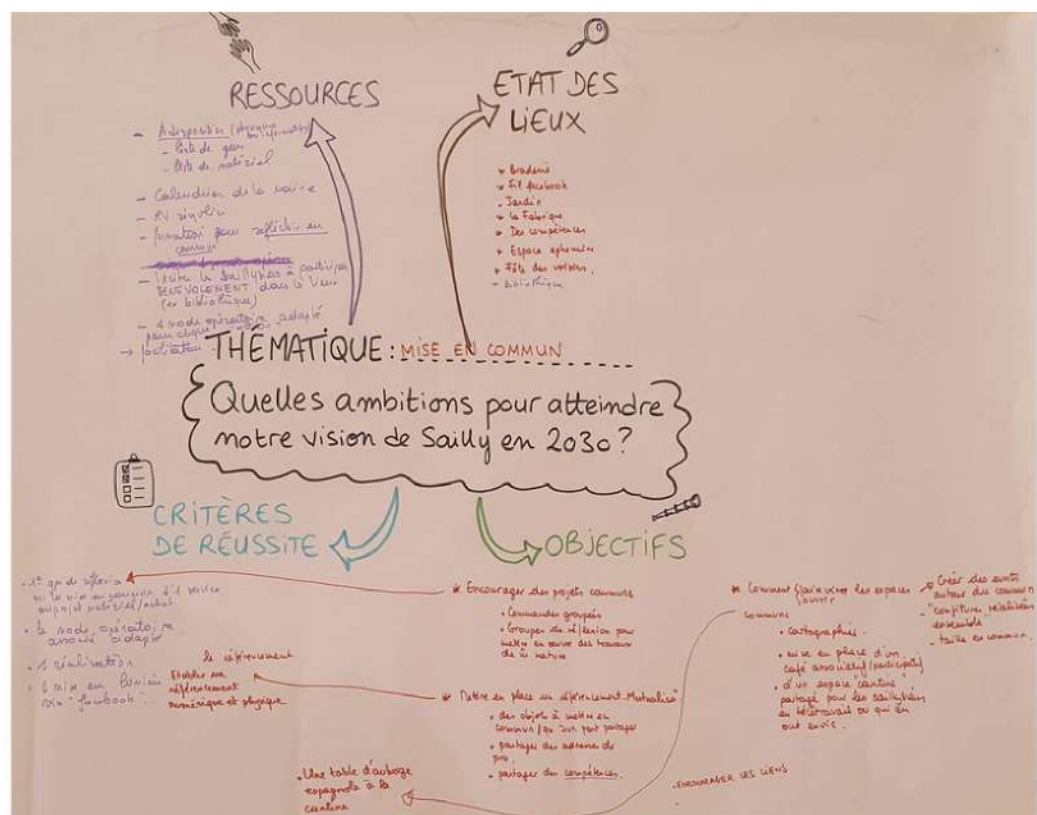 RESSOURCES
- A disposition (physique ou informatique)
- liste de gens
- liste de matériel
- Calendrier de la mairie
- RV régulier
- formation pour réfléchir en
commun
- inciter les Saillyséens à participer
BÉNÉVOLEMENT dans le lieux
(ex bibliothèque)
- 1 mode opératoire adapté
pour chaque
→ facilitateur
ETAT DES
LIEUX
* Braderie
* Fil facebook
. Jardin
* La Fabrique
* Des compétences
* Espace ephemère
* Fête des voisins.
- bibliothèque
THÉMATIQUE : MISE EN COMMUN
Quelles ambitions pour atteindre
notre vision de Sailly en 2030 ?
CRITÈRES
DE RÉUSSITE
OBJECTIFS
• 1er gp de réflexion
sur la mise en commun d'1 service
ou projet matériel/achat.
• le mode opératoire
associé adapté
• 1 réalisation
• 1 mise en lumière
via "facebook"..
le référencement
Etablir un
référencement
numérique et physique
• Une table d'auberge
espagnole à la
cantine
* Encourager des projets communs
• Commandes groupées
• Groupes de réflexion pour
mettre en œuvre des travaux
de la nature
* Mettre en place un référencement "Mutualisé"
• des objets à mettre en
commun/qu'on peut partager
• partager des adresses de
pro.
• partager des compétences.
* Comment faire vivre les espaces
/ouvrir
communs
• cartographier.
• mise en place d'un
café associatif/participatif
• d'un espace "cantine"
partagé pour les saillyséens
en télétravail ou qui en
ont envie.
. ENCOURAGER LES LIENS
* Créer des events
autour du commun
- "confitures" réalisées
ensemble
- taille en commun.